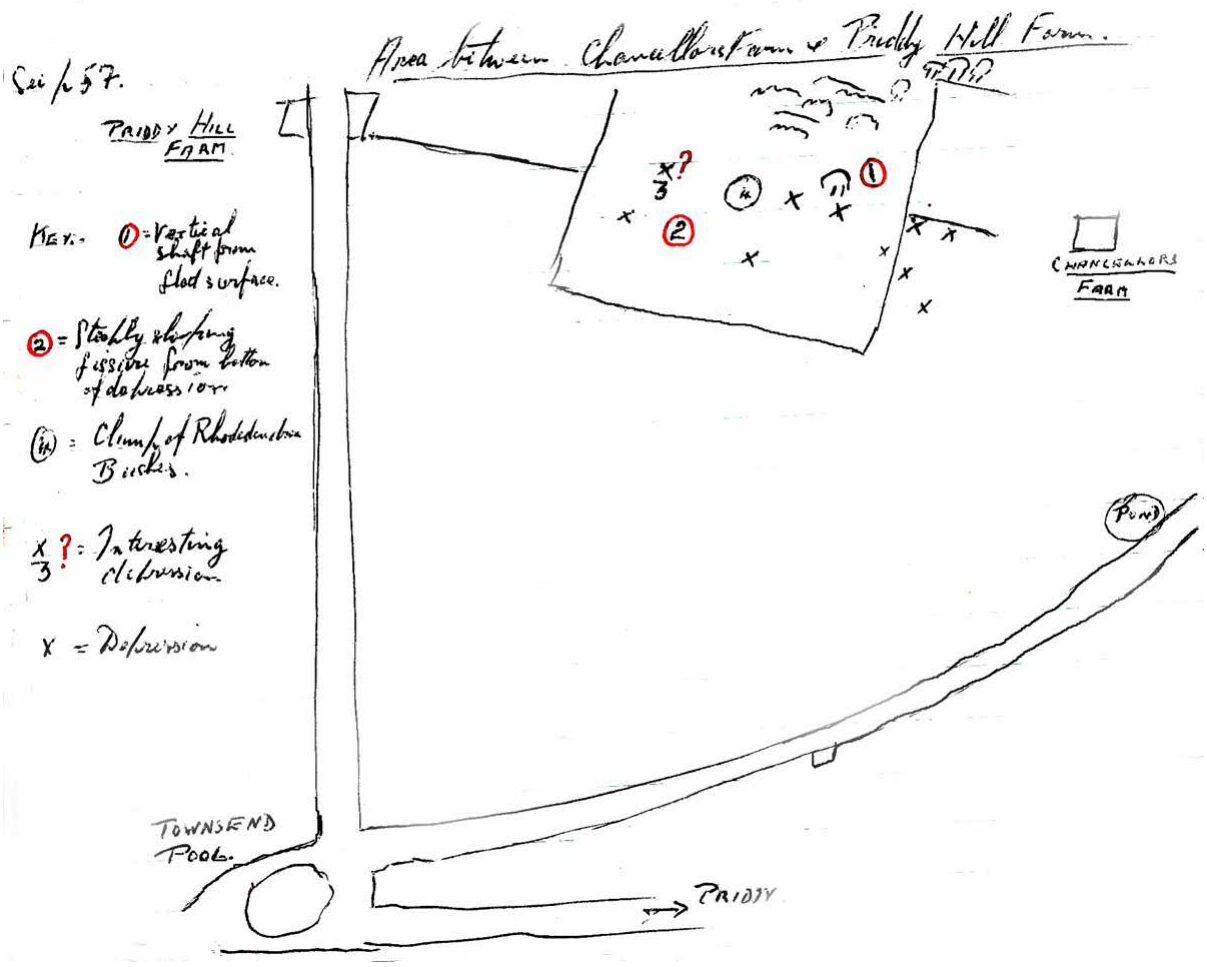 Area between Chancellors Farm & Priddy Hill Farm.
See p 57.
PRIDDY HILL
FARM
KEY:- 1 = Vertical
shaft from
flod surface.
2 = Steeply sloping
fissure from bottom
of depression
= Clump of Rhodedendron
Bushes.
x/3 ? = Interesting
depression
x = Depression
x/3 ?
1
2
x
x
x
x
x
x
x
x
x
CHANCELLORS
FARM
POND
TOWNSEND
POOL.
→ PRIDDY